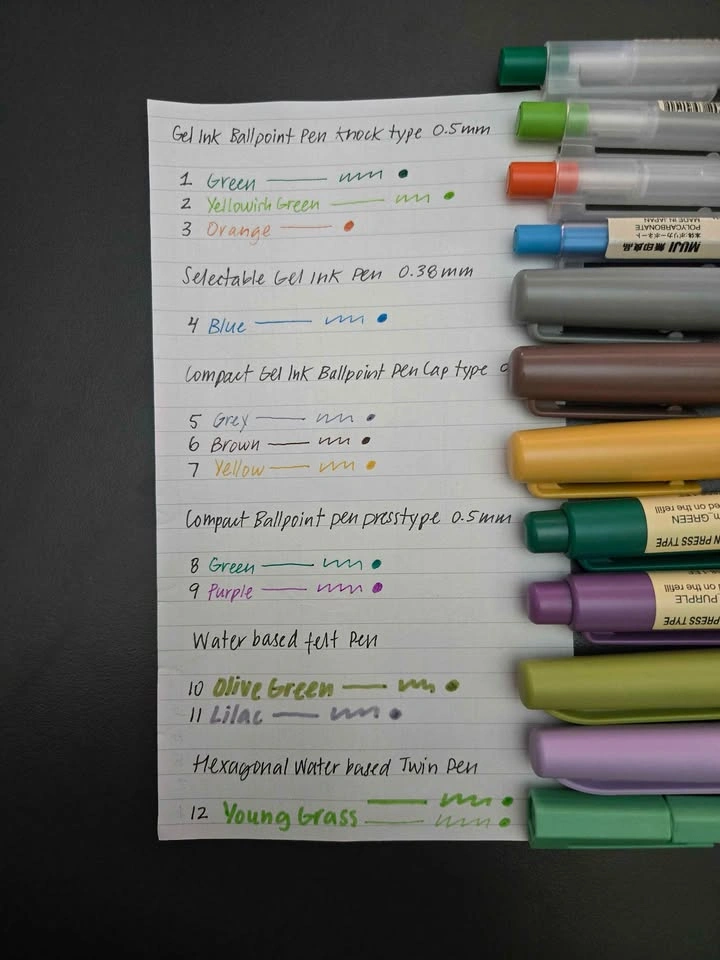 Gel Ink Ballpoint Pen knock type 0.5mm
1 Green
2 Yellowish Green
3 Orange
Selectable Gel Ink Pen 0.38mm
4 Blue
Compact Gel Ink Ballpoint Pen Cap type
5 Grey
6 Brown
7 Yellow
Compact Ballpoint pen presstype 0.5mm
8 Green
9 Purple
Water based felt Pen
10 Olive Green
11 Lilac
Hexagonal Water based Twin Pen
12 Young Grass
MUJI 無印良品
本体:ポリカーボネート
POLYCARBONATE
MADE IN JAPAN
PRESS TYPE
GREEN
on the refill
PRESS TYPE
PURPLE
on the refill